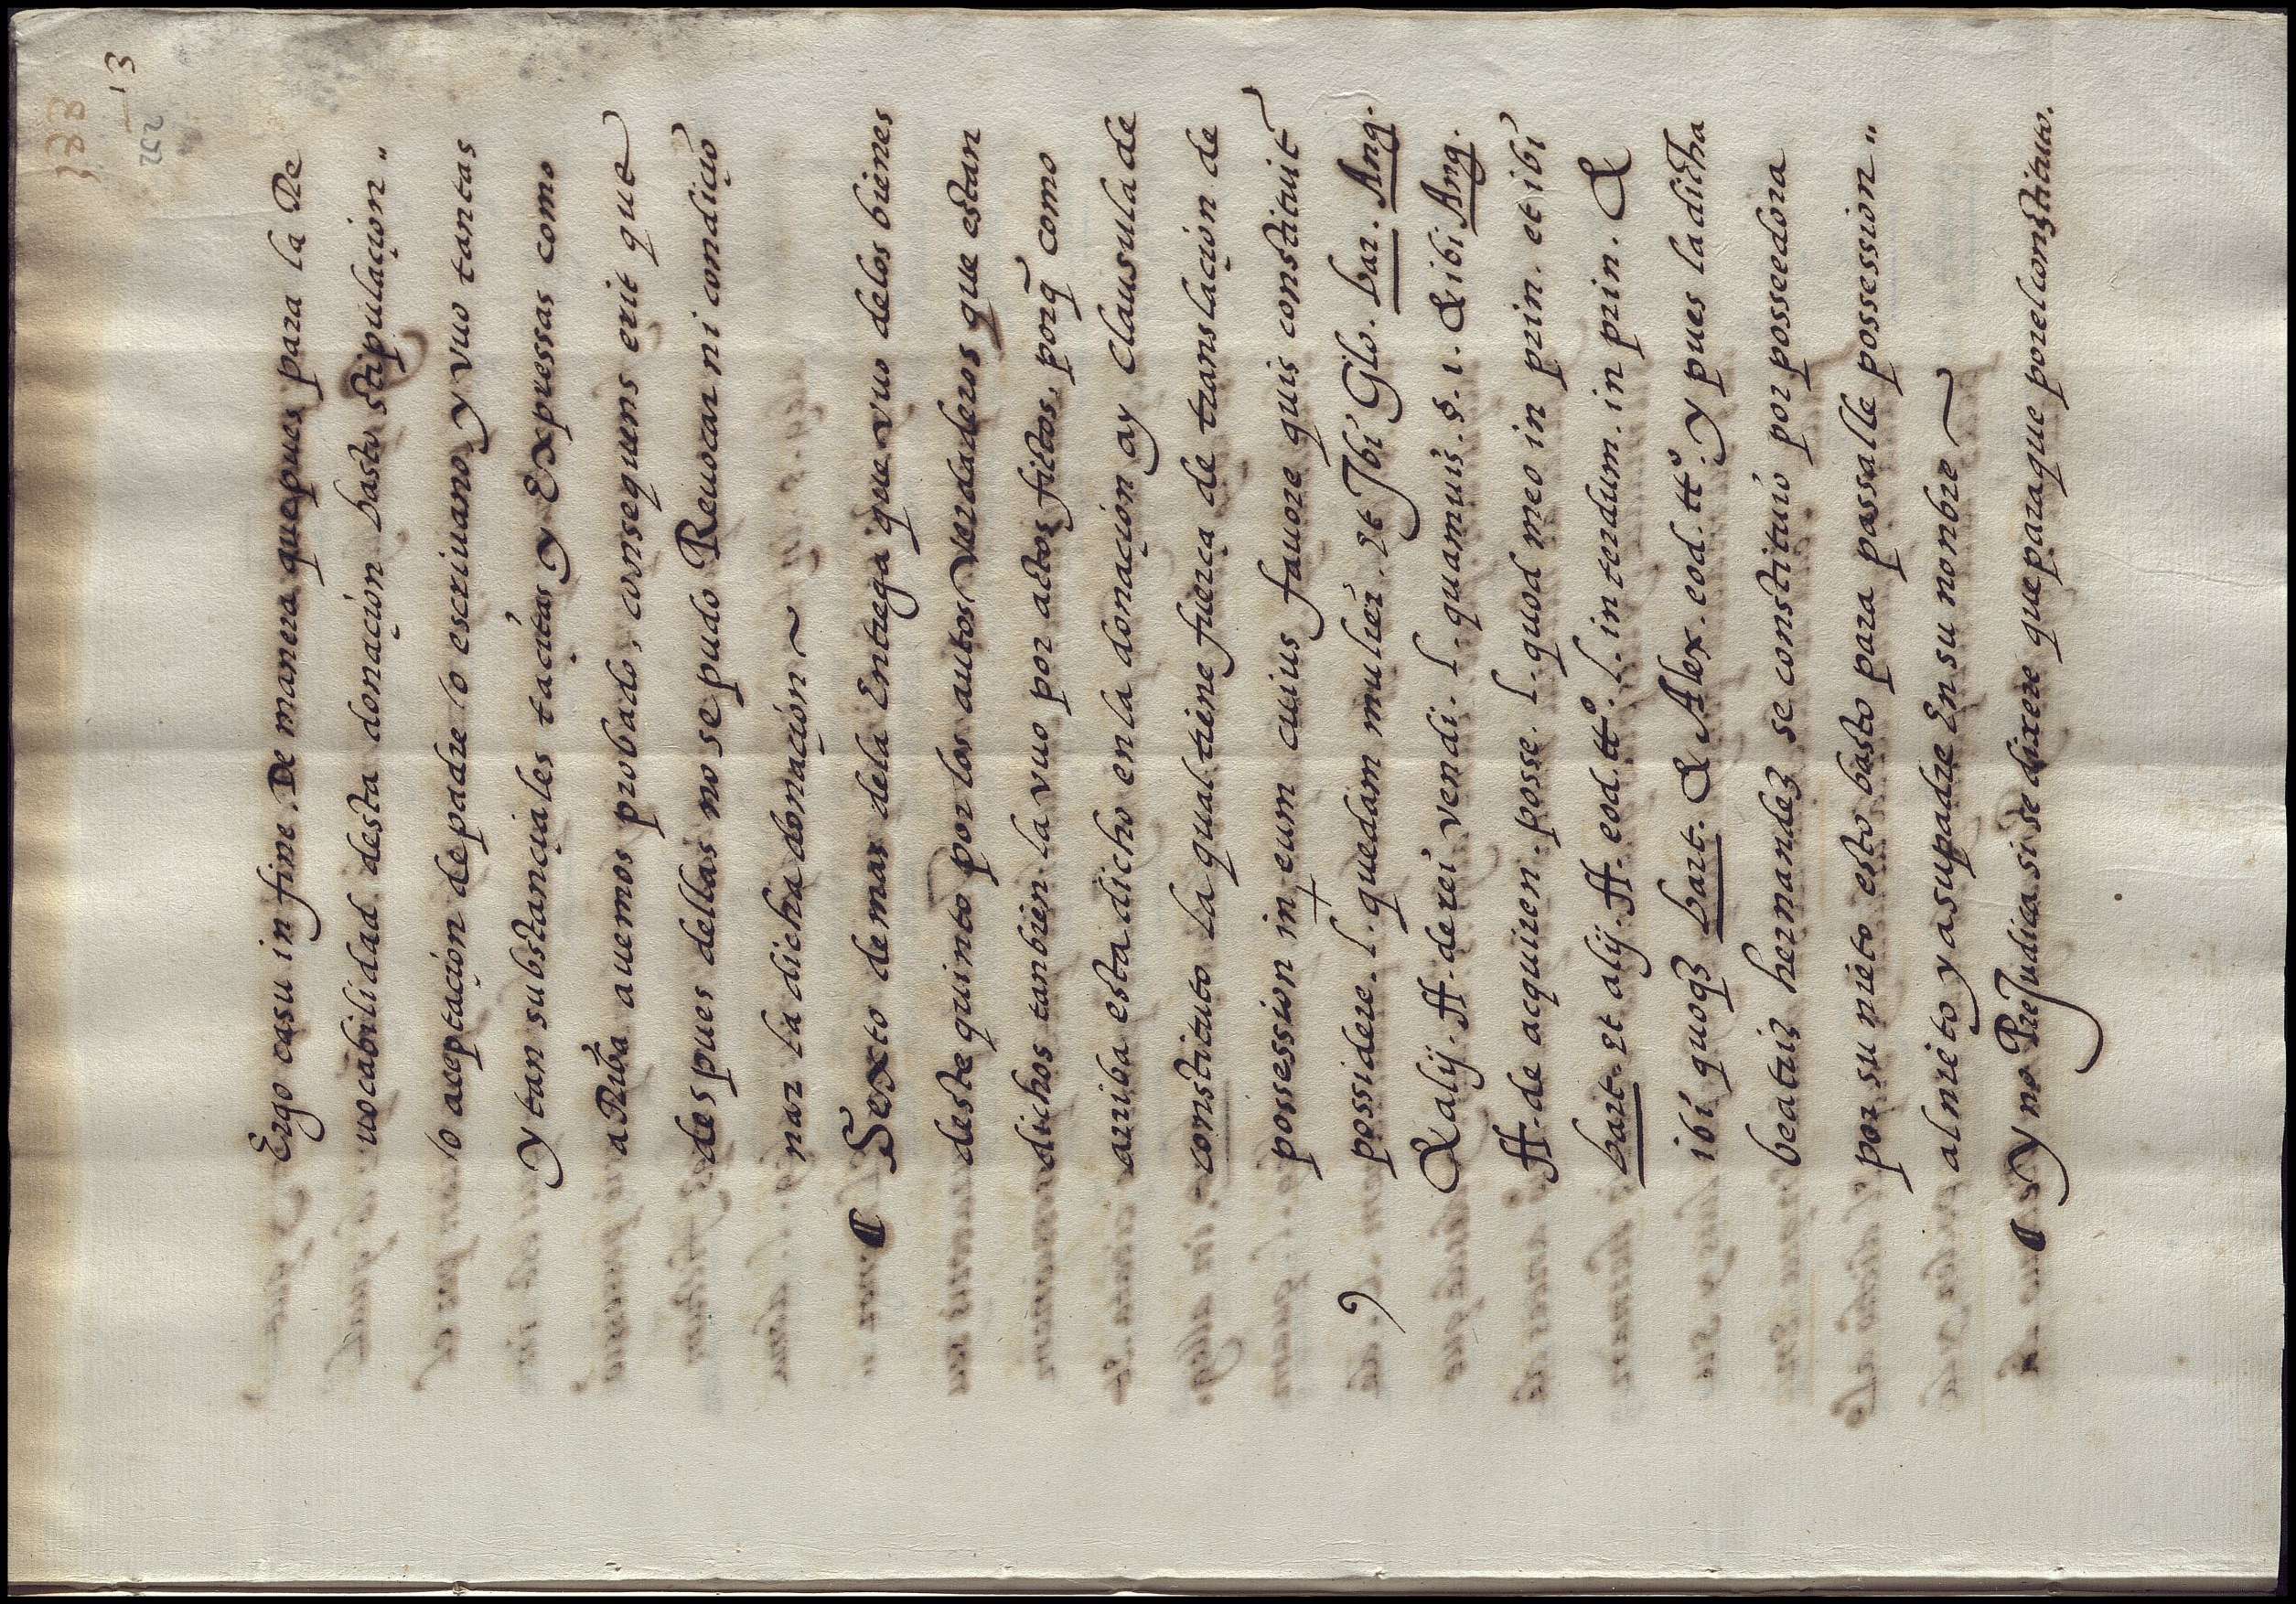 333
13
202
Ergo casu in fine. De manera que pues para la Re
uocabilidad desta donaçion basto stipulaçion "
lo aceptaçion de padre lo escriuano y vuo tantas
y tan substançiales taçitas y Expressas como
aRiba auemos probado, consequens erit que
despues dellas no se pudo Reuocar ni condiçio
nar la dicha donaçion ~
¶ Sexto demas dela Entrega que vuo delos bienes
deste quinto por los autos verdaderos que estan
dichos tanbien la vuo por actos fictos, porq̃ como
arriba esta dicho en la donaçion ay clausula de
constituto la qual tiene fuerça de translaçion de
possession in eum cuius fauore quis constituit
possidere. l. quedam mulier. et Jbi Glo. bar. Ang.
& alij. ff. de rei vendi. l. quamuis. §. 1. & ibi Ang.
ff. de acquiren. posse. l. quod meo in prin. et ibi
bart. et alij. ff. eod. ttº. l. interdum. in prin. &
ibi quoqȝ bart. & Alex. eod. ttº. y pues la dicha
beatriz hernandez se constituio por posseedora
por su nieto esto basto para passalle possession "
al nieto y asu padre En su nonbre ~
¶ y no PreJudica si se dixere que para que por el constituto.